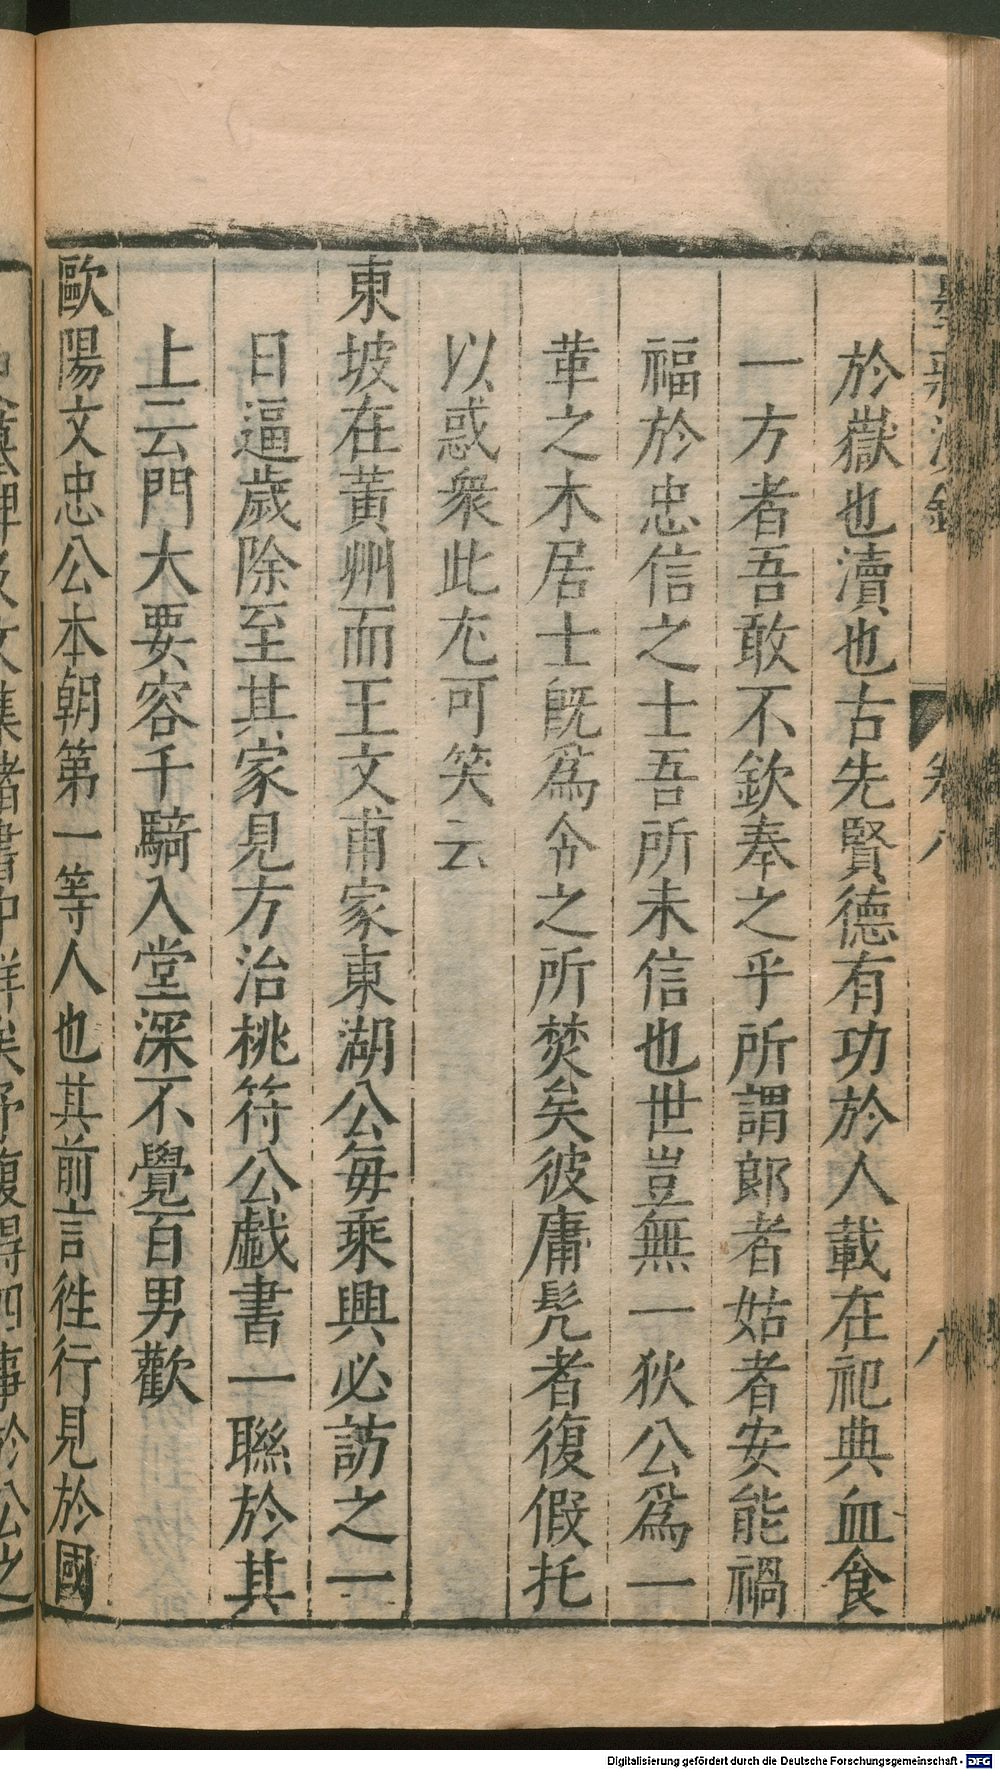 墨莊漫錄 卷八 八
於嶽也瀆也古先賢德有功於人載在祀典血食
一方者吾敢不欽奉之乎所謂郎者姑者安能禍
福於忠信之士吾所未信也世豈無一狄公爲一
革之木居士旣爲令之所焚矣彼庸髡者復假托
以惑衆此尤可笑云
東坡在黃州而王文甫家東湖公每乘興必訪之一
日逼歲除至其家見方治桃符公戯書一聯於其
上云門大要容千騎入堂深不覺百男歡
歐陽文忠公本朝第一等人也其前言徃行見於國
文集諸書中詳矣予復得四事於公之
Digitalisierung gefördert durch die Deutsche Forschungsgemeinschaft - DFG